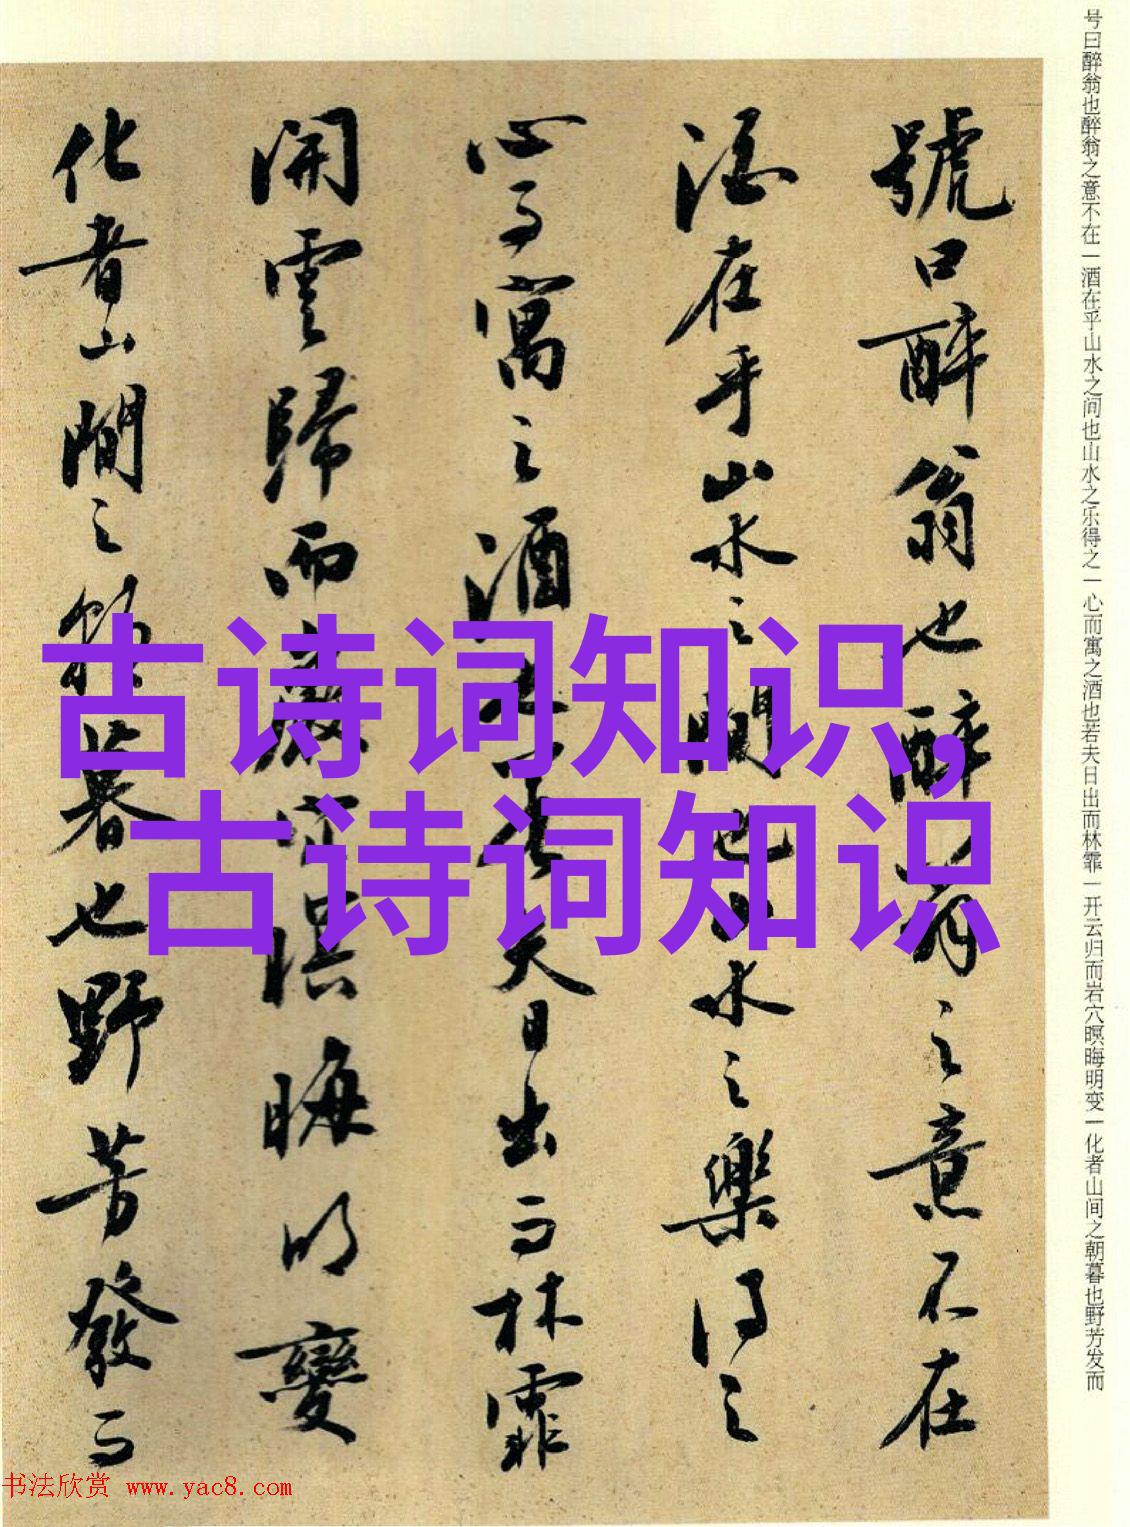 号曰醉翁也醉翁之意不在一酒在乎山水之间也山水之乐得之一心而寓之酒也若夫日出而林霏一开云归而岩穴暝晦明变一化者山间之朝暮也野芳发而
號曰醉翁也醉翁之意不在
酒在乎山水之間也山水之樂得之
心而寓之酒也若夫日出而林霏
開雲歸而巖穴暝晦明變
化者山間之朝暮也野芳發而
古诗词知识,
古诗词知识
书法欣赏 www.yac8.com